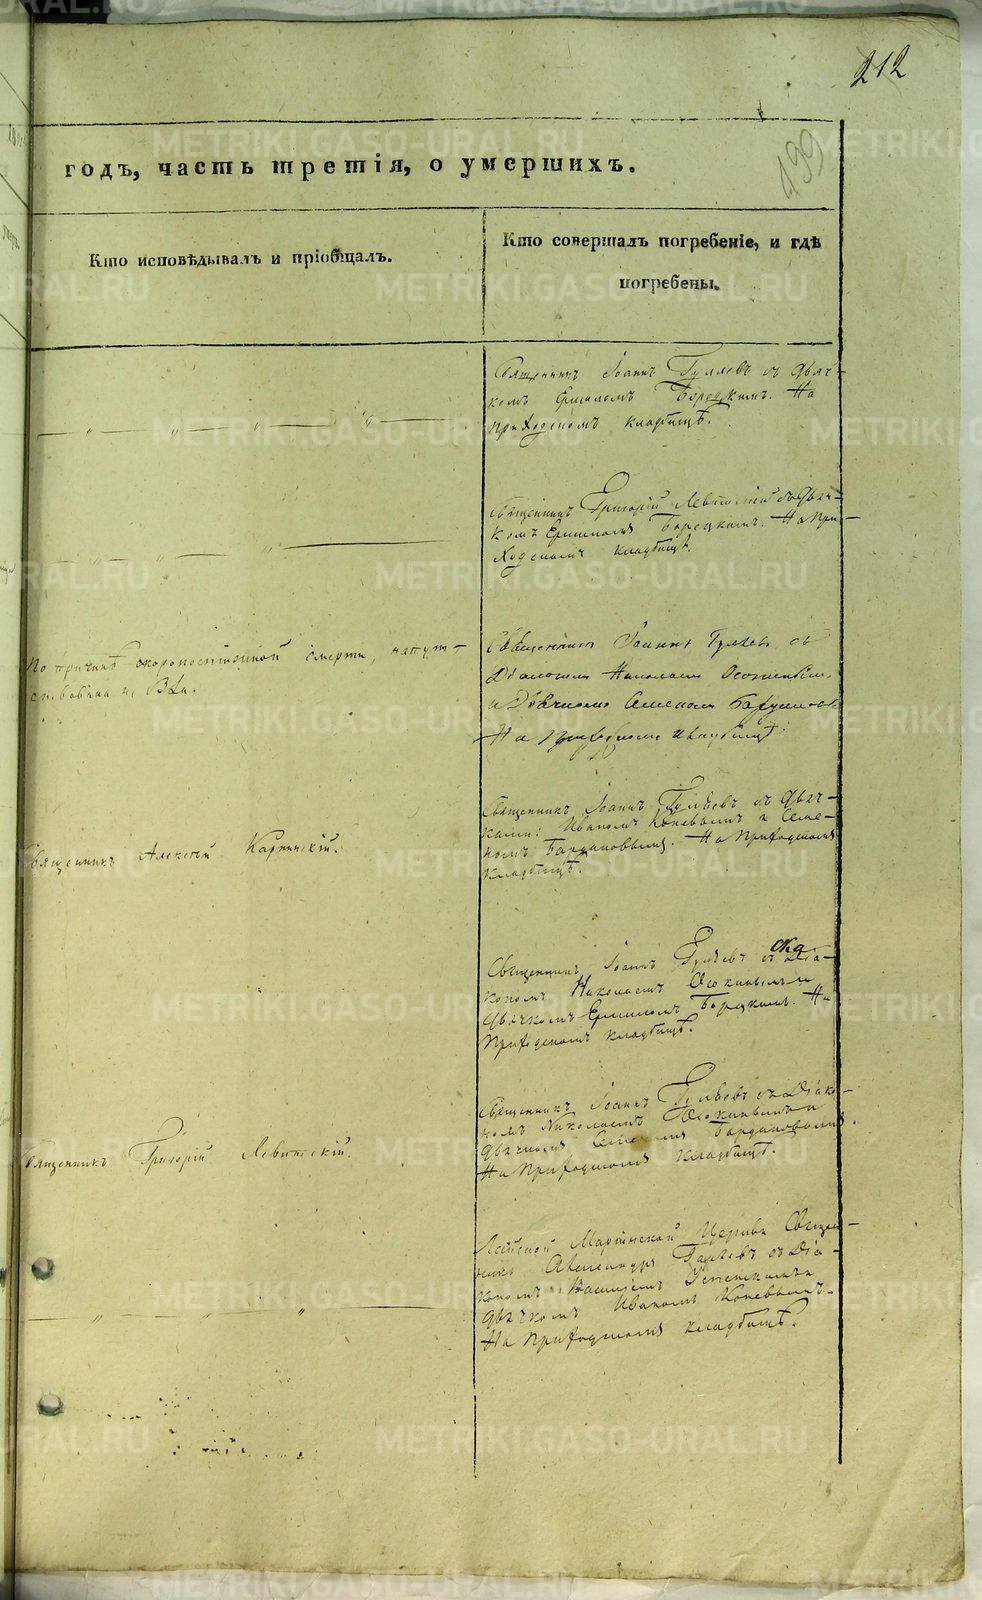 212
199
годъ, часть третія, о умершихъ.
Кто исповѣдывалъ и пріобщалъ.
Кто совершалъ погребеніе, и гдѣ
погребены.
Священникъ Іоаннъ Гуляевъ съ Дьяч-
комъ Ермиломъ Борецкимъ. На
приходскомъ кладбищѣ.
Священникъ Григорій Левитскій съ Дьяч-
комъ Ермиломъ Борецкимъ. На При-
ходскомъ кладбищѣ.
По причинѣ скоропостижной смерти, напут-
ствована не была.
Священникъ Іоаннъ Гуляевъ съ
Діакономъ Николаемъ
и Дьячкомъ Семеномъ
На Приходскомъ кладбищѣ.
Священникъ Алексѣй Карпинскій.
Священникъ Іоаннъ Гуляевъ съ Дьяч-
ками: Иваномъ Коневымъ и Семе-
номъ. На Приходскомъ
кладбищѣ.
Священникъ Іоаннъ Гуляевъ съ Діа-
кономъ Николаемъ Осокинымъ и
Дьячкомъ Ермиломъ Борецкимъ. На
Приходскомъ кладбищѣ.
Священникъ Григорій Левитскій.
Священникъ Іоаннъ Гуляевъ съ Діако-
номъ Николаемъ Осокинымъ и
Дьячкомъ Семеномъ
На Приходскомъ кладбищѣ.
Маріинской Церкви Священ-
никъ Александръ съ Діа-
кономъ Василіемъ Успенскимъ и
Дьячкомъ Иваномъ Коневымъ.
На Приходскомъ кладбищѣ.
METRIKI.GASO-URAL.RU